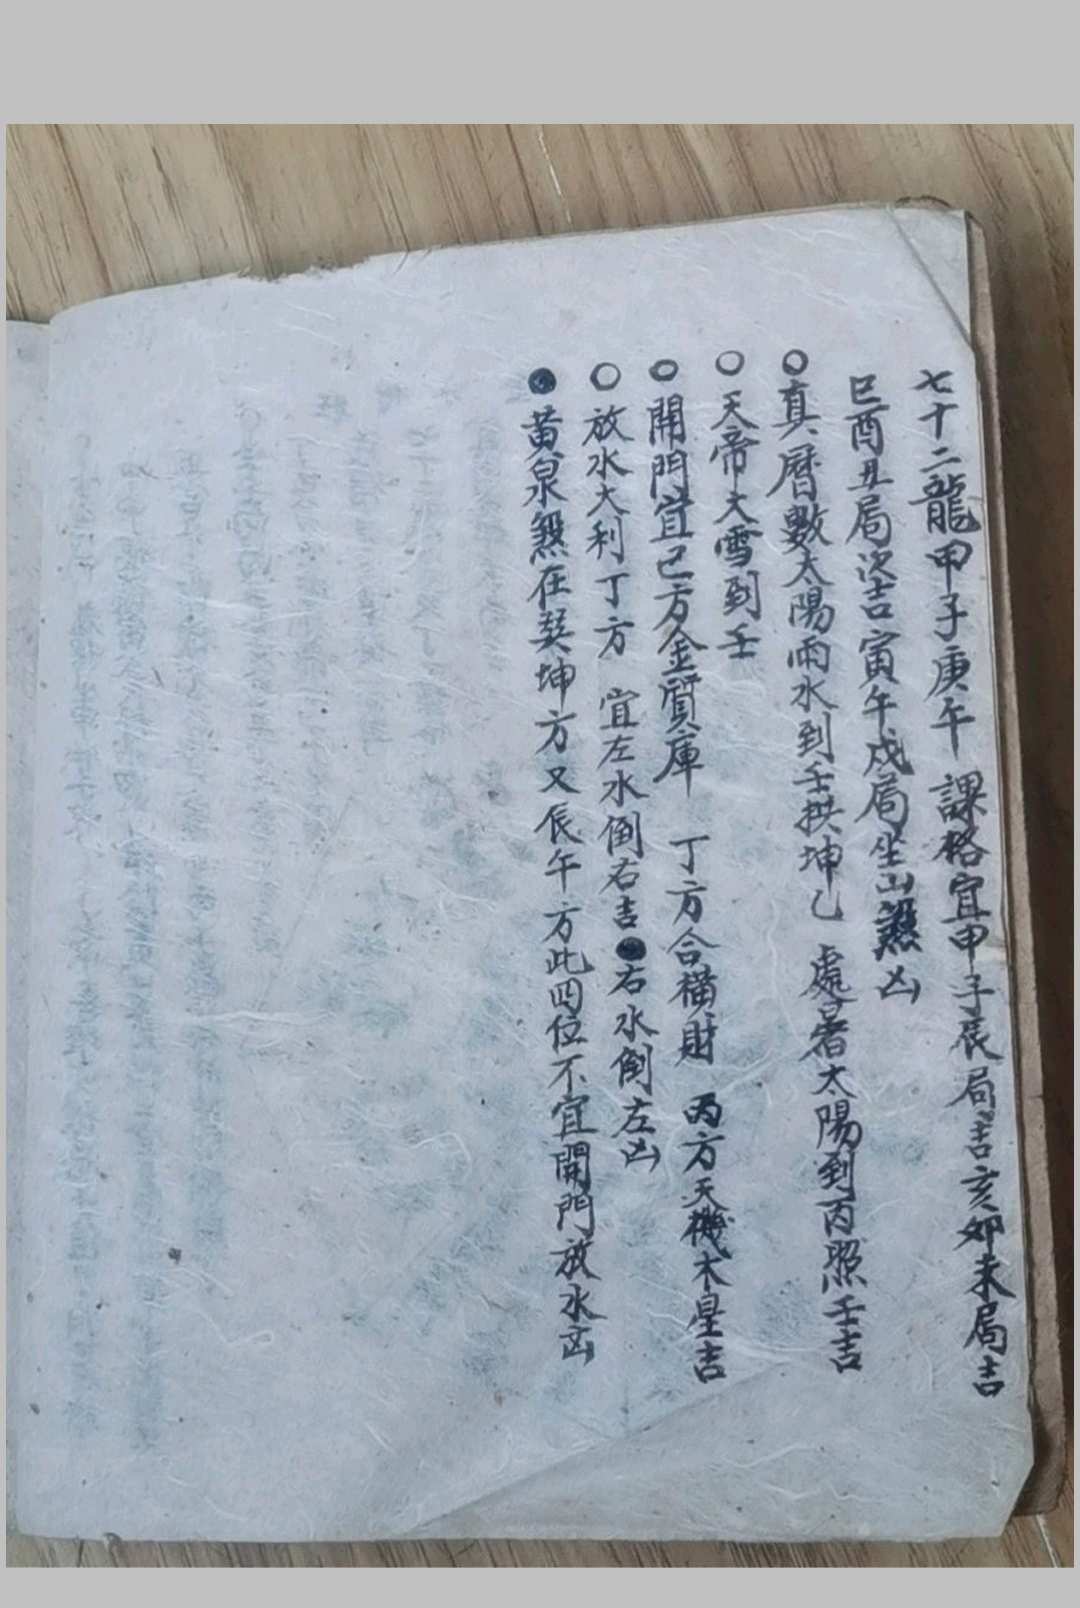 七十二龍甲子庚午 課格宜申子辰局吉亥卯未局吉
巳酉丑局次吉寅午戌局坐山煞凶
○真曆數太陽雨水到壬拱坤乙 處暑太陽到丙照壬吉
○天帝大雪到壬
○開門宜巳方金質庫 丁方合橫財 丙方天機木星吉
○放水大利丁方 宜左水倒右吉●右水倒左凶
●黃泉煞在癸坤方又辰午方此四位不宜開門放水凶